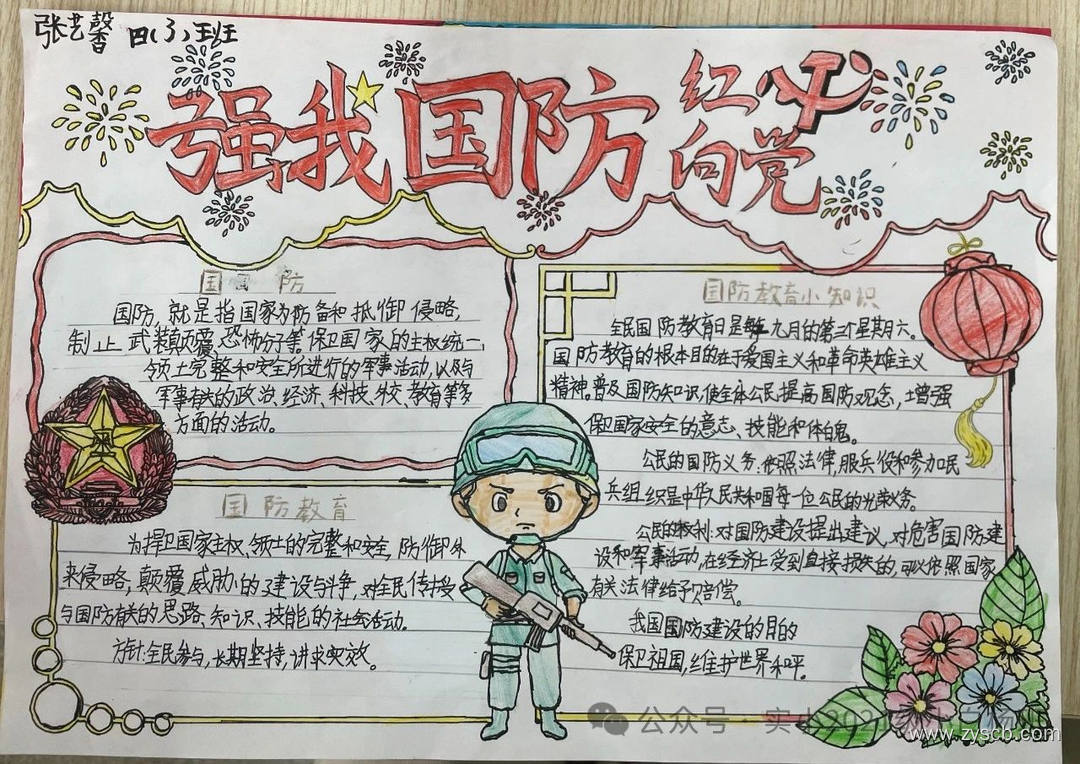 张艺馨 四(3)班
强我国防
红
向党
国防
国防,就是指国家为防备和抵御侵略,
制止武装颠覆,恐怖分等。保卫国家的主权统一、
领土完整和安全所进行的军事活动,以及与
军事有关的政治、经济、科技、外交、教育等多
方面的活动。
国防教育
为捍卫国家主权、领土的完整和安全,防御外
来侵略,颠覆威胁的建设与斗争,对全民传授
与国防有关的思路、知识、技能的社会活动。
方针:全民参与,长期坚持,讲求实效。
国防教育小知识
全民国防教育日是每年九月的第三个星期六。
国防教育的根本目的在于爱国主义和革命英雄主义
精神。普及国防知识,使全体公民,提高国防观念,增强
保卫国家安全的意志、技能和体魄。
公民的国防义务:依照法律,服兵役和参加民
兵组织是中华人民共和国每一位公民的光荣义务。
公民的权利:对国防建设提出建议,对危害国防建
设和军事活动,在经济上受到直接损失的,可以依照国家
有关法律给予赔偿。
我国国防建设的目的
保卫祖国,维护世界和平。
公众号·实小202
www.zyscb.com